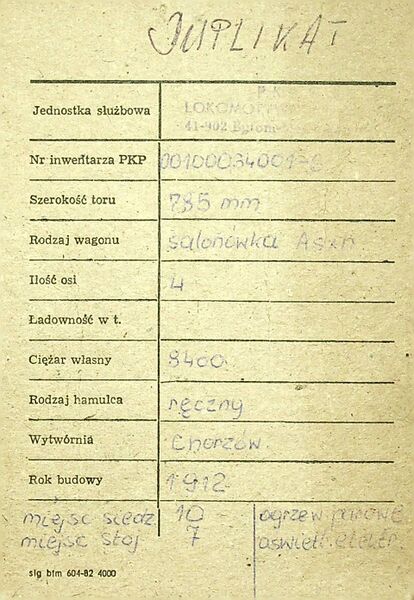 DUPLIKAT
Jednostka służbowa LOKOMOTY
41-902 Bytom
Nr inwentarza PKP 00100034001-6
Szerokość toru 785 mm
Rodzaj wagonu salonówka
Ilość osi 4
Ładowność w t.
Ciężar własny 8400
Rodzaj hamulca ręczny
Wytwórnia Chorzów
Rok budowy 1912
miejsc siedz. 10 ogrzew parowe
miejsc stoj 7 oświetl. elektr.
sig btm 604-82 4000